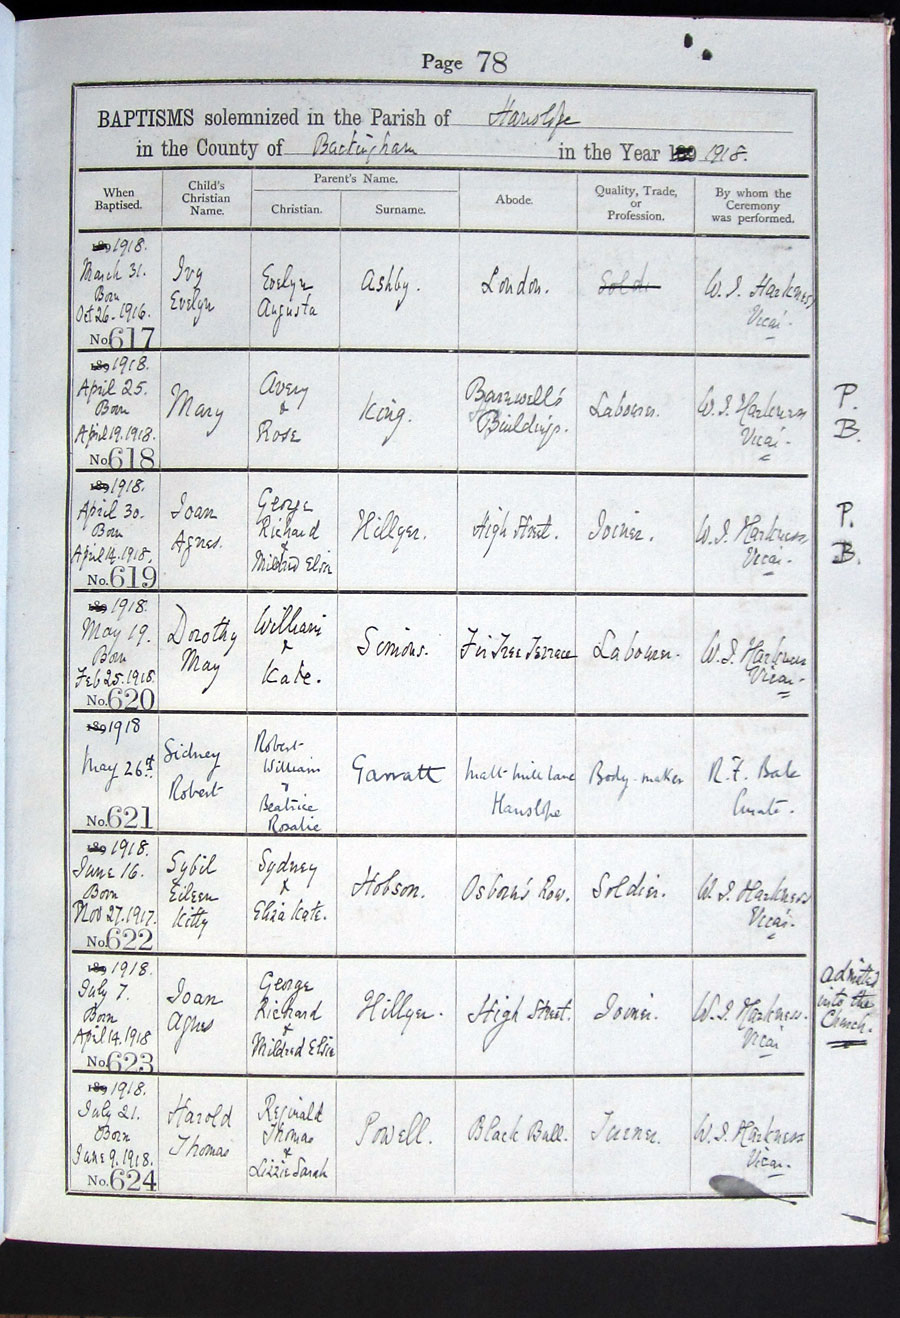 Page 78
BAPTISMS solemnized in the Parish of Hanslope
in the County of Buckingham in the Year 189 1918.
When Baptised. Child's Christian Name. Parent's Name. Abode. Quality, Trade, or Profession. By whom the Ceremony was performed.
Christian. Surname.
189 1918.
March 31.
Born
Oct 26. 1916.
No. 617
Ivy
Evelyn
Evelyn
Augusta
Ashby.
London.
Sold
W. J. Harkness
Vicar.
189 1918.
April 25.
Born
April 19. 1918.
No. 618
Mary
Avery
&
Rose
King.
Barnwell's
Buildings.
Labourer.
W. J. Harkness
Vicar.
P.
B.
189 1918.
April 30.
Born
April 14. 1918.
No. 619
Joan
Agnes.
George
Richard
&
Mildred Elsie
Hillyer.
High Street.
Joiner.
W. J. Harkness
Vicar.
P.
B.
189 1918.
May 19.
Born
Feb 25. 1918
No. 620
Dorothy
May
William
&
Kate.
Simons.
Fir Tree Terrace
Labourer.
W. J. Harkness
Vicar.
189 1918
May 26th
No. 621
Sidney
Robert
Robert
William
&
Beatrice
Rosalie
Garratt
Malt-mill lane
Hanslope
Body-maker
R. F. Bale
Curate.
189 1918.
June 16.
Born
Nov 27. 1917.
No. 622
Sybil
Eileen
Kitty
Sydney
&
Eliza Kate.
Hobson.
Osborn's Row.
Soldier.
W. J. Harkness
Vicar.
189 1918.
July 7.
Born
April 14. 1918
No. 623
Joan
Agnes
George
Richard
&
Mildred Elsie
Hillyer.
High Street.
Joiner.
W. J. Harkness.
Vicar
admitted
into the
Church.
189 1918.
July 21.
Born
June 9. 1918.
No. 624
Harold
Thomas
Reginald
Thomas
&
Lizzie Sarah
Powell.
Black Bull.
Turner.
W. J. Harkness
Vicar.